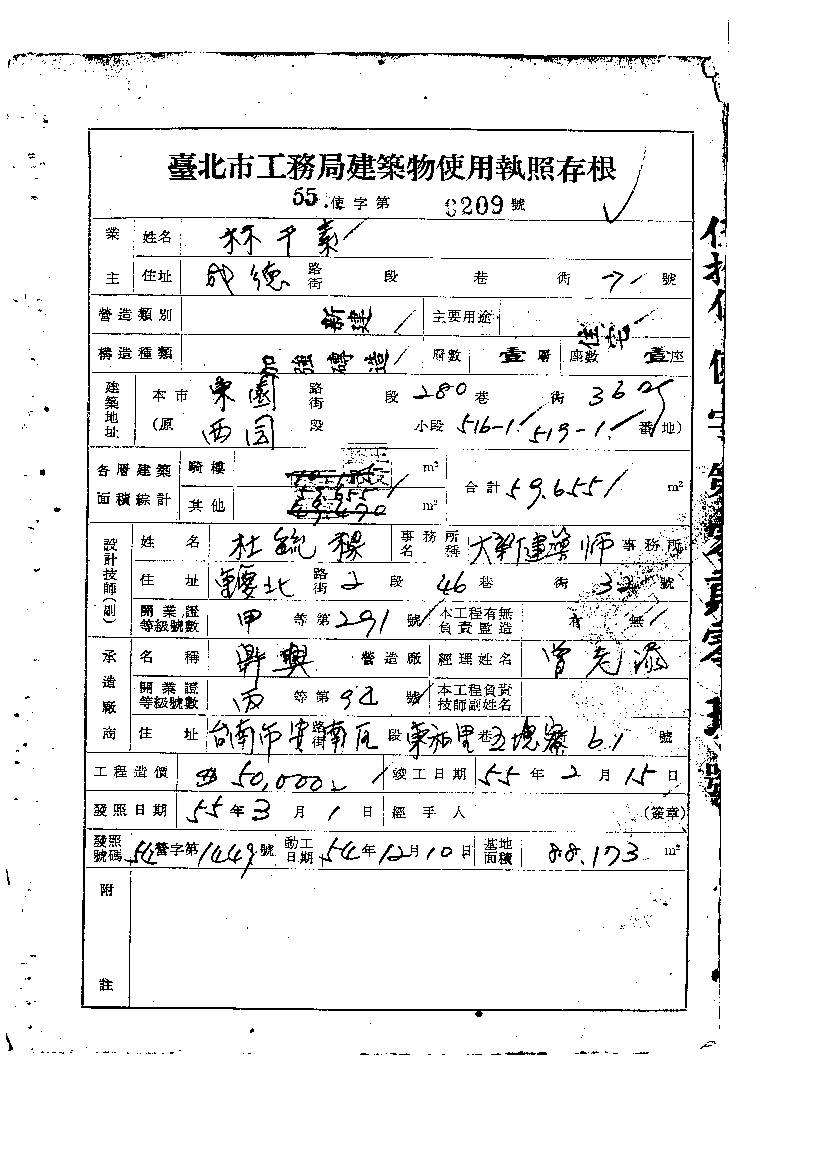 臺北市工務局建築物使用執照存根
55.使字第 0209號
業主 姓名 林千素
住址 成德 路街 段 巷 街 71 號
營造類別 新建 主要用途 住宅
構造種類 加強磚造 層數 壹層 座數 壹座
建築地址 本市 東園 路街 段 280 巷 街 36
(原 西园 段 小段 516-1. 519-1. 番地)
各層建築面積綜計 騎樓 m² 合計 59.655 m²
其他 59.655 m²
設計技師(副) 姓名 杜毓穆 事務所名稱 建築師 事務所
住址 重慶北 路街 2 段 46 巷 街 32 號
開業證等級號數 甲 等第 291 號 本工程有無負責監造 有 無
承造廠商 名稱 鼎興 營造廠 經理姓名 曾老添
開業證等級號數 丙 等第 92 號 本工程負責技師副姓名
住址 台南市安南区 路街 段 東和里 巷 五塊寮 61 號
工程造價 50,000 竣工日期 55年2月15日
發照日期 55年3月1日 經手人 (簽章)
發照號碼 54營字第1449號 動工日期 54年12月10日 基地面積 88.173 m²
附註